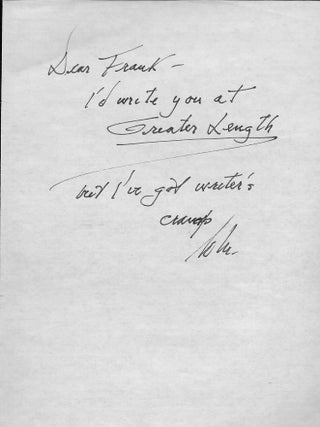 Dear Frank —
I'd write you at
Greater Length
but I've got writer's
cramp